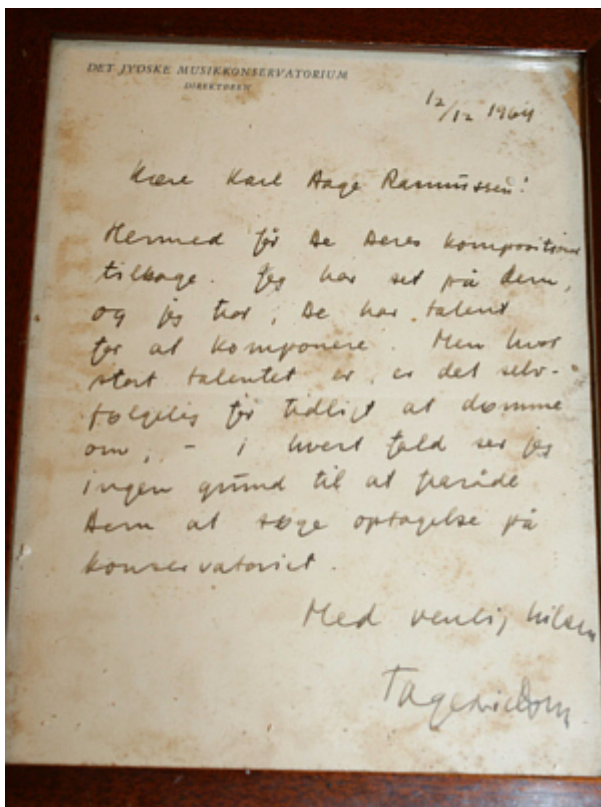 DET JYDSKE MUSIKKONSERVATORIUM
DIREKTØREN
12/12 1964
Kære Karl Aage Rasmussen!
Hermed får De Deres kompositioner
tilbage. Jeg har set på dem,
og jeg tror, De har talent
for at komponere. Men hvor
stort talentet er, er det selv-
følgelig for tidligt at dømme
om, - i hvert fald ser jeg
ingen grund til at fraråde
Dem at søge optagelse på
konservatoriet.
Med venlig hilsen